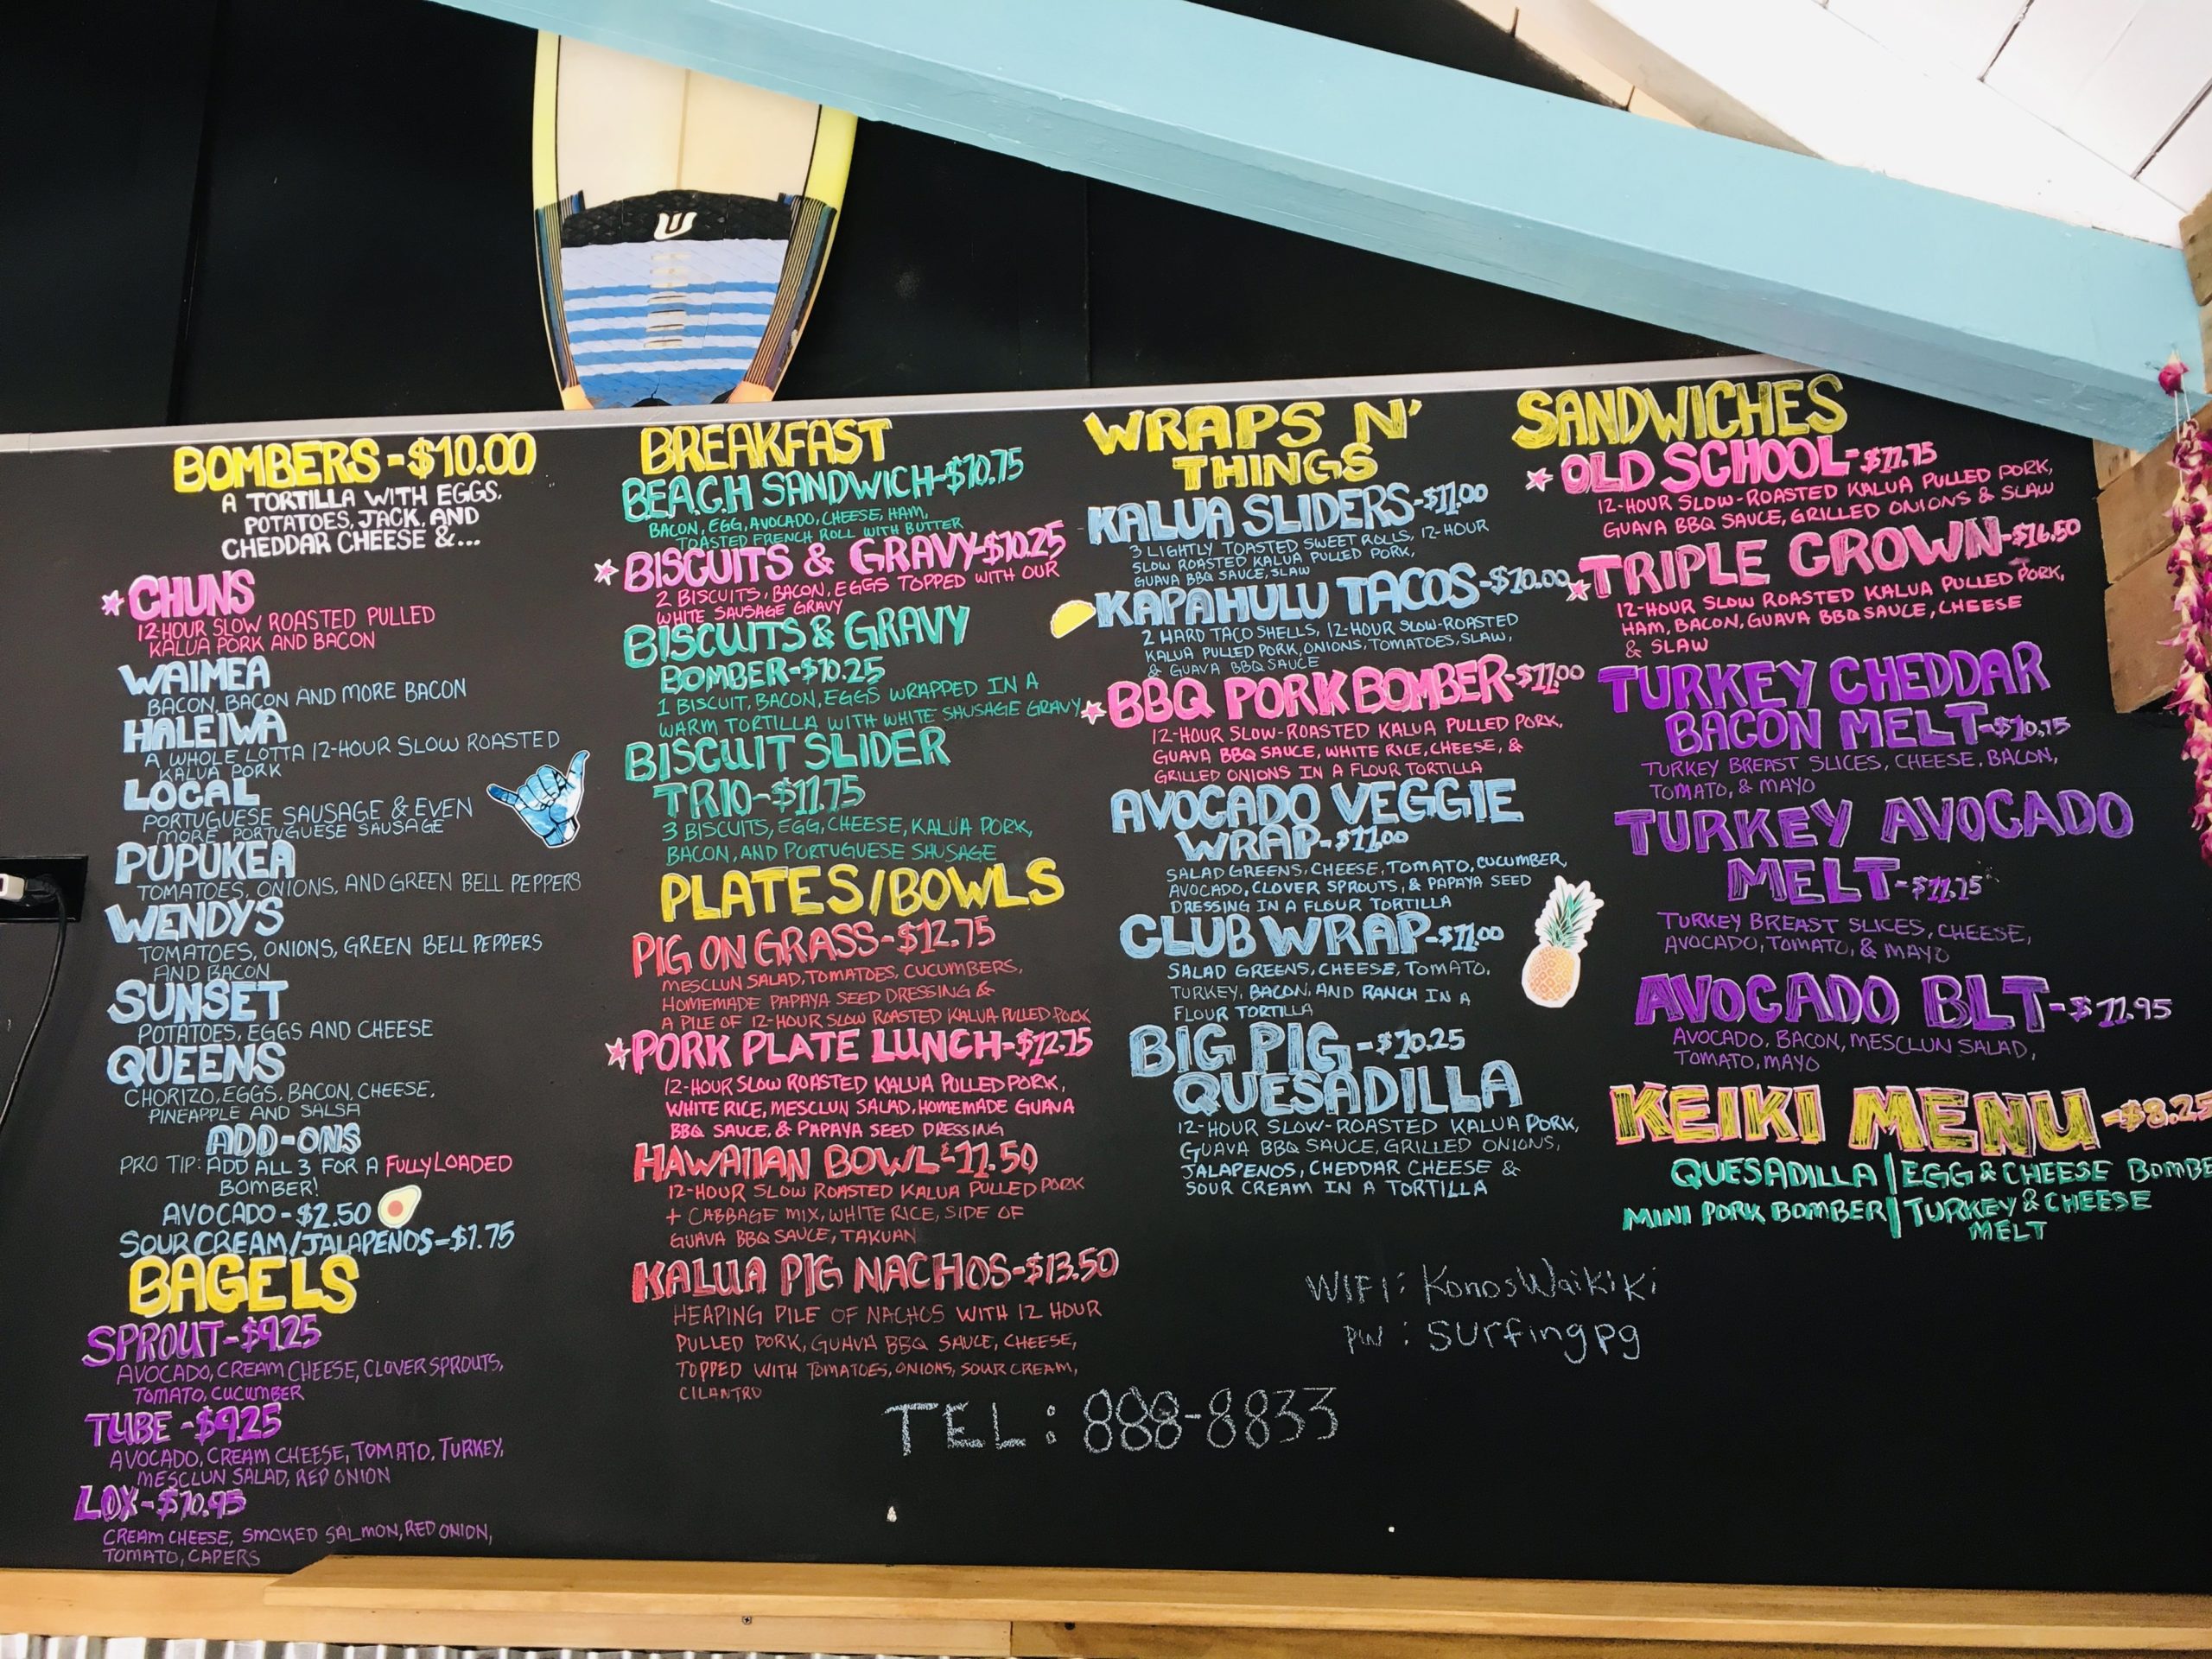 BOMBERS-$10.00
A TORTILLA WITH EGGS,
POTATOES, JACK, AND
CHEDDAR CHEESE &...
CHUNS
12-HOUR SLOW ROASTED PULLED
KALUA PORK AND BACON
WAIMEA
BACON, BACON AND MORE BACON
HALEIWA
A WHOLE LOTTA 12-HOUR SLOW ROASTED
KALUA PORK
LOCAL
PORTUGUESE SAUSAGE & EVEN
MORE PORTUGUESE SAUSAGE
PUPUKEA
TOMATOES, ONIONS, AND GREEN BELL PEPPERS
WENDY'S
TOMATOES, ONIONS, GREEN BELL PEPPERS
AND BACON
SUNSET
POTATOES, EGGS AND CHEESE
QUEENS
CHORIZO, EGGS, BACON, CHEESE,
PINEAPPLE AND SALSA
ADD-ONS
PRO TIP: ADD ALL 3 FOR A FULLY LOADED
BOMBER!
AVOCADO-$2.50
SOUR CREAM/JALAPENOS-$1.75
BAGELS
SPROUT-$9.25
AVOCADO, CREAM CHEESE, CLOVER SPROUTS,
TOMATO, CUCUMBER
TUBE-$9.25
AVOCADO, CREAM CHEESE, TOMATO, TURKEY,
MESCLUN SALAD, RED ONION
LOX-$10.95
CREAM CHEESE, SMOKED SALMON, RED ONION,
TOMATO, CAPERS
BREAKFAST
BEACH SANDWICH-$10.75
BACON, EGG, AVOCADO, CHEESE, HAM,
TOASTED FRENCH ROLL WITH BUTTER
BISCUITS & GRAVY-$10.25
2 BISCUITS, BACON, EGGS TOPPED WITH OUR
WHITE SAUSAGE GRAVY
BISCUITS & GRAVY
BOMBER-$10.25
1 BISCUIT, BACON, EGGS WRAPPED IN A
WARM TORTILLA WITH WHITE SAUSAGE GRAVY
BISCUIT SLIDER
TRIO-$11.75
3 BISCUITS, EGG, CHEESE, KALUA PORK,
BACON, AND PORTUGUESE SAUSAGE
PLATES/BOWLS
PIG ON GRASS-$12.75
MESCLUN SALAD, TOMATOES, CUCUMBERS,
HOMEMADE PAPAYA SEED DRESSING &
A PILE OF 12-HOUR SLOW ROASTED KALUA PULLED PORK
PORK PLATE LUNCH-$12.75
12-HOUR SLOW ROASTED KALUA PULLED PORK,
WHITE RICE, MESCLUN SALAD, HOMEMADE GUAVA
BBQ SAUCE, & PAPAYA SEED DRESSING
HAWAIIAN BOWL-$11.50
12-HOUR SLOW ROASTED KALUA PULLED PORK
+ CABBAGE MIX, WHITE RICE, SIDE OF
GUAVA BBQ SAUCE, TAKUAN
KALUA PIG NACHOS-$13.50
HEAPING PILE OF NACHOS WITH 12 HOUR
PULLED PORK, GUAVA BBQ SAUCE, CHEESE,
TOPPED WITH TOMATOES, ONIONS, SOUR CREAM,
CILANTRO
WRAPS N'
THINGS
KALUA SLIDERS-$11.00
3 LIGHTLY TOASTED SWEET ROLLS, 12-HOUR
SLOW ROASTED KALUA PULLED PORK,
GUAVA BBQ SAUCE, SLAW
KAPAHULU TACOS-$10.00
2 HARD TACO SHELLS, 12-HOUR SLOW-ROASTED
KALUA PULLED PORK, ONIONS, TOMATOES, SLAW,
& GUAVA BBQ SAUCE
BBQ PORK BOMBER-$11.00
12-HOUR SLOW-ROASTED KALUA PULLED PORK,
GUAVA BBQ SAUCE, WHITE RICE, CHEESE, &
GRILLED ONIONS IN A FLOUR TORTILLA
AVOCADO VEGGIE
WRAP-$11.00
SALAD GREENS, CHEESE, TOMATO, CUCUMBER,
AVOCADO, CLOVER SPROUTS, & PAPAYA SEED
DRESSING IN A FLOUR TORTILLA
CLUB WRAP-$11.00
SALAD GREENS, CHEESE, TOMATO,
TURKEY, BACON, AND RANCH IN A
FLOUR TORTILLA
BIG PIG-$10.25
QUESADILLA
12-HOUR SLOW-ROASTED KALUA PORK,
GUAVA BBQ SAUCE, GRILLED ONIONS,
JALAPENOS, CHEDDAR CHEESE &
SOUR CREAM IN A TORTILLA
SANDWICHES
OLD SCHOOL-$11.75
12-HOUR SLOW-ROASTED KALUA PULLED PORK,
GUAVA BBQ SAUCE, GRILLED ONIONS & SLAW
TRIPLE CROWN-$16.50
12-HOUR SLOW ROASTED KALUA PULLED PORK,
HAM, BACON, GUAVA BBQ SAUCE, CHEESE
& SLAW
TURKEY CHEDDAR
BACON MELT-$10.75
TURKEY BREAST SLICES, CHEESE, BACON,
TOMATO, & MAYO
TURKEY AVOCADO
MELT-$11.75
TURKEY BREAST SLICES, CHEESE,
AVOCADO, TOMATO, & MAYO
AVOCADO BLT-$11.95
AVOCADO, BACON, MESCLUN SALAD,
TOMATO, MAYO
KEIKI MENU-$8.25
QUESADILLA | EGG & CHEESE BOMBE
MINI PORK BOMBER | TURKEY & CHEESE
MELT
WIFI: KonosWaikiki
pw: surfingpg
TEL: 888-8833